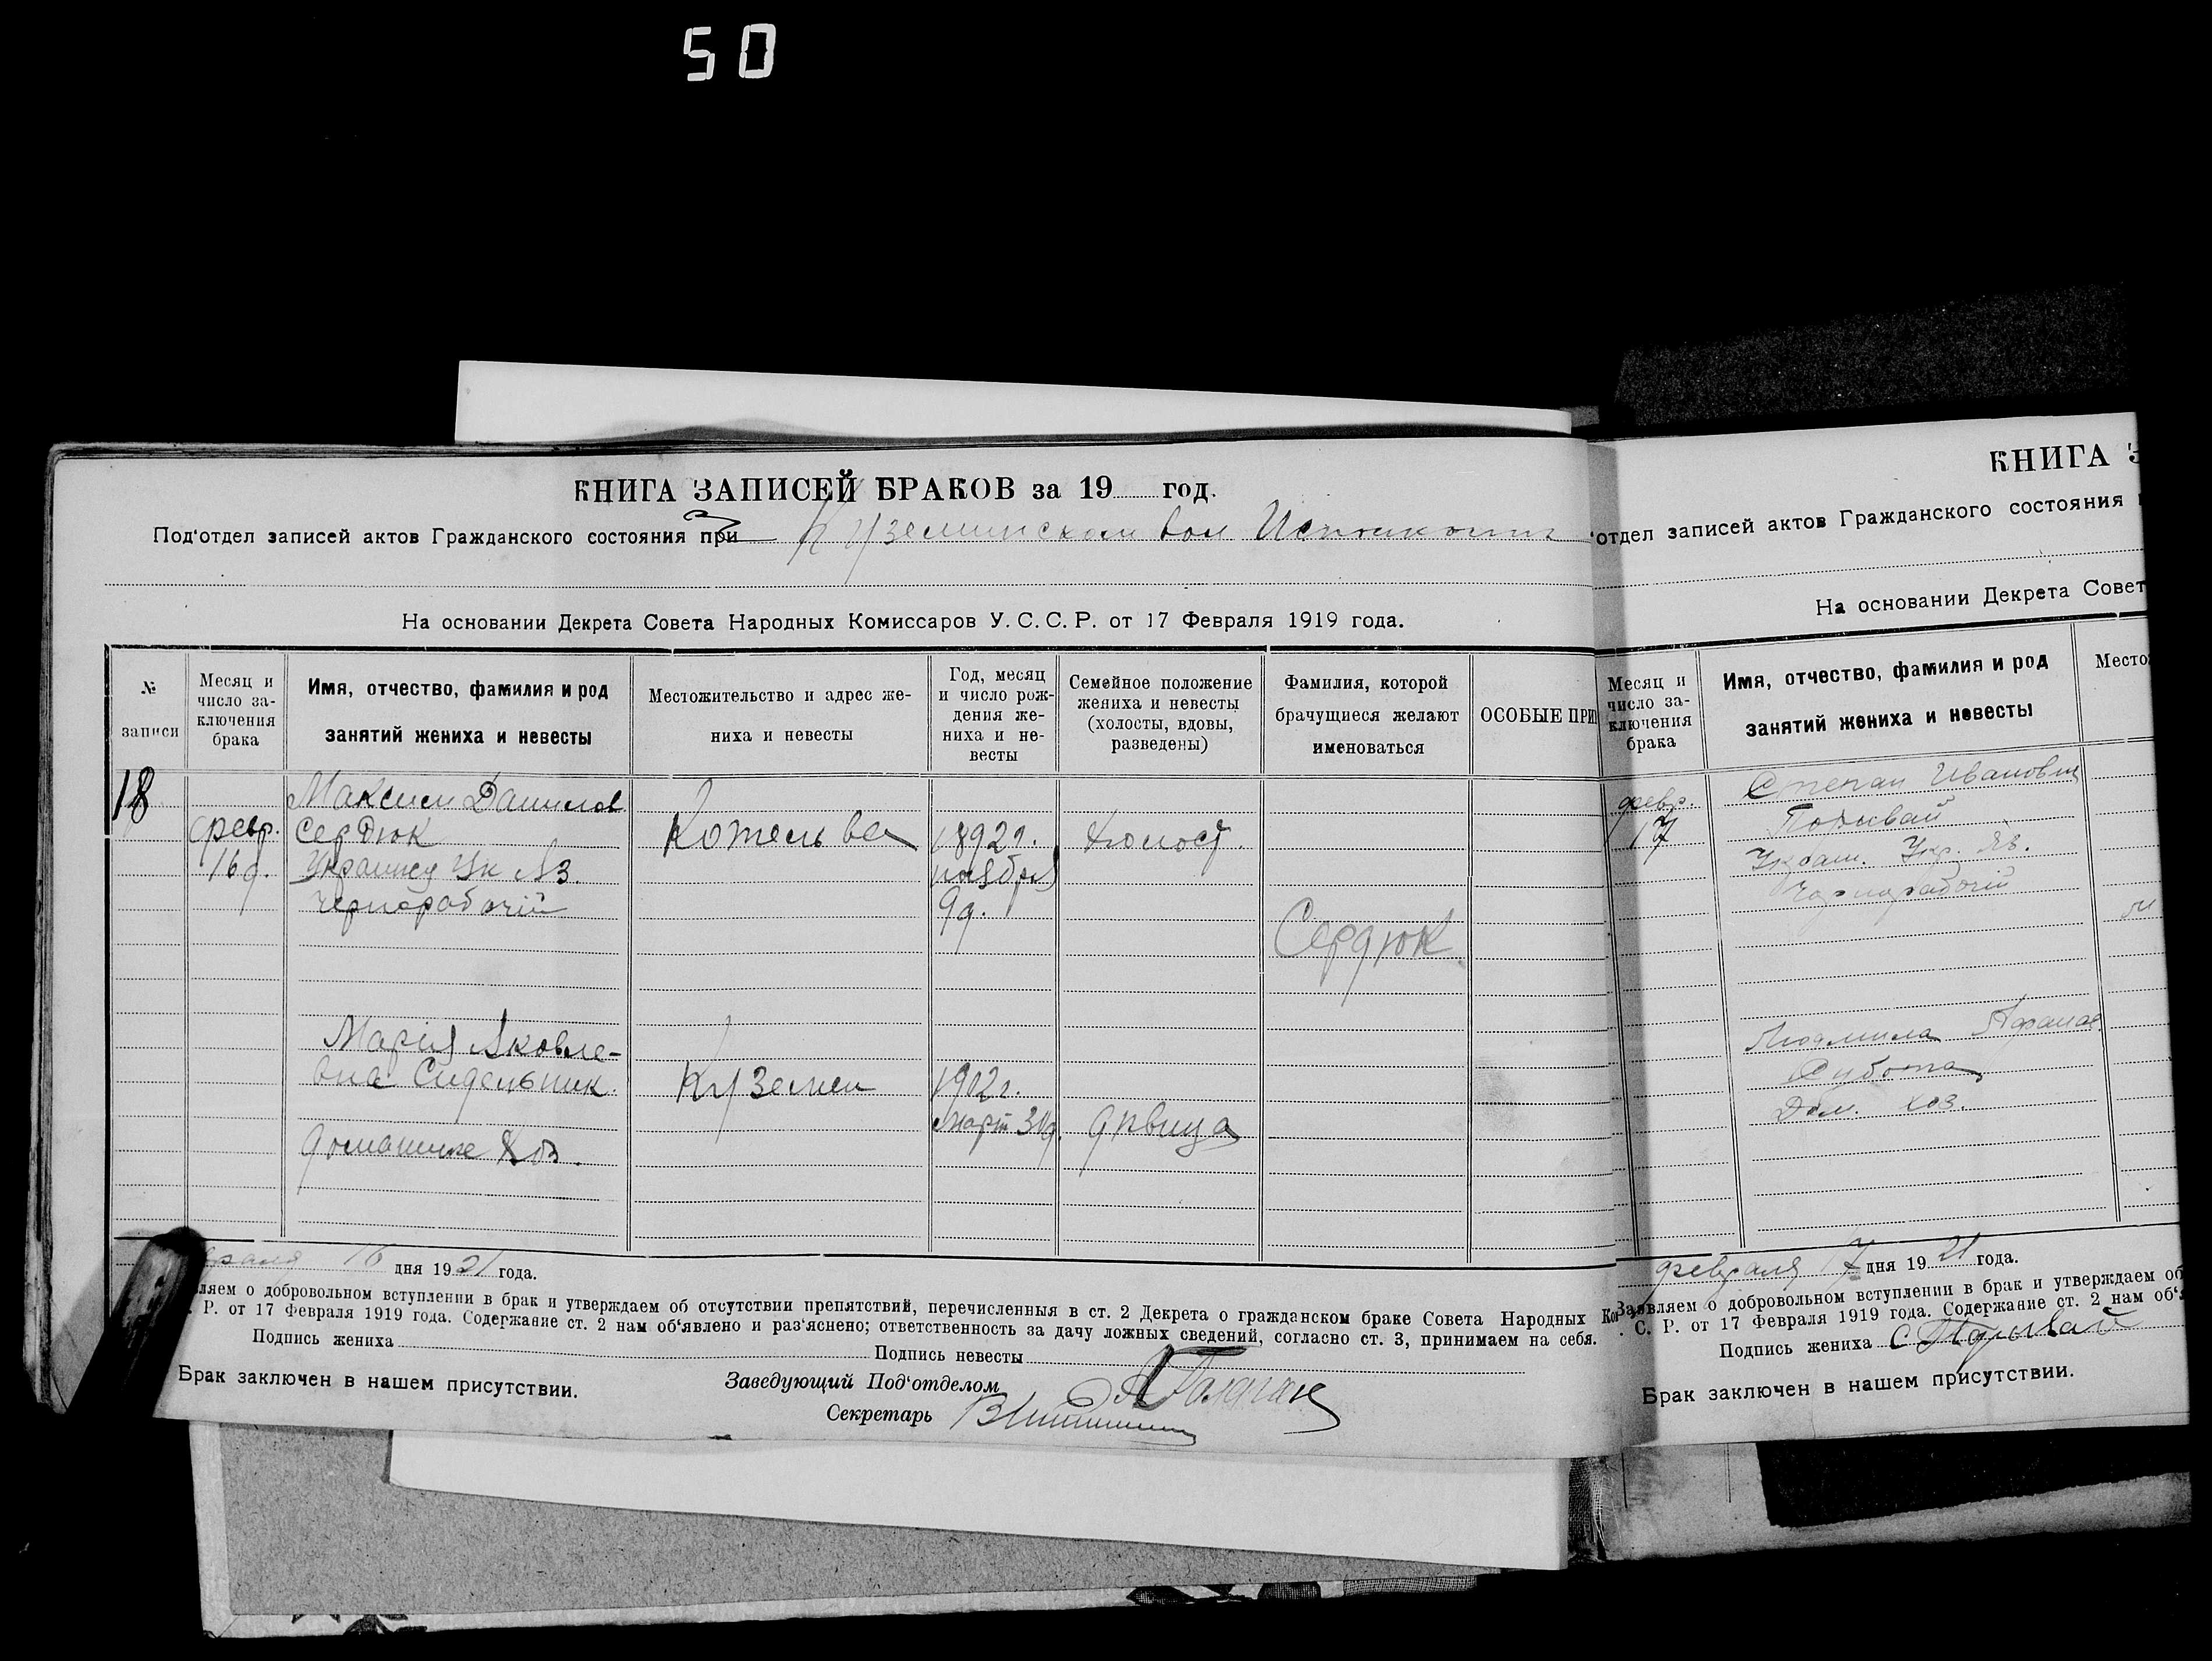 50
КНИГА ЗАПИСЕЙ БРАКОВ за 19 год.
Под'отдел записей актов Гражданского состояния при Куземинском вол
На основании Декрета Совета Народных Комиссаров У. С. С. Р. от 17 Февраля 1919 года.
№ записи
Месяц и число за-
ключения
брака
Имя, отчество, фамилия и род
занятий жениха и невесты
Местожительство и адрес же-
ниха и невесты
Год, месяц
и число рож-
дения же-
ниха и не-
весты
Семейное положение
жениха и невесты
(холосты, вдовы,
разведены)
Фамилия, которой
брачущиеся желают
именоваться
ОСОБЫЕ ПРИ
18
февр.
16 д.
Максим Данилов
Сердюк
чернорабочій
Котельва
1892 г.
ноября
9 д.
Холост.
Сердюк
Марія Яковле-
вна Сидельник.
домашние хоз.
Куземен
1902 г.
март 31 д.
девица
16 дня 1921 года.
ляем о добровольном вступлении в брак и утверждаем об отсутствии препятствий, перечисленныя в ст. 2 Декрета о гражданском браке Совета Народных Ко
Р. от 17 Февраля 1919 года. Содержание ст. 2 нам об'явлено и раз'яснено; ответственность за дачу ложных сведений, согласно ст. 3, принимаем на себя.
Подпись жениха
Подпись невесты
Брак заключен в нашем присутствии.
Заведующий Под'отделом
Секретарь
КНИГА З
'отдел записей актов Гражданского состояния
На основании Декрета Совет
Месяц и
число за-
ключения
брака
Имя, отчество, фамилия и род
занятий жениха и невесты
Место
февр.
17
Степан Иванович
Подывай
Чернорабочій
Людмила Афанас
Субота
Дом. хоз.
февраля 17 дня 1921 года.
Заявляем о добровольном вступлении в брак и утверждаем об
С. Р. от 17 Февраля 1919 года. Содержание ст. 2 нам об'
Подпись жениха С Подывай
Брак заключен в нашем присутствии.